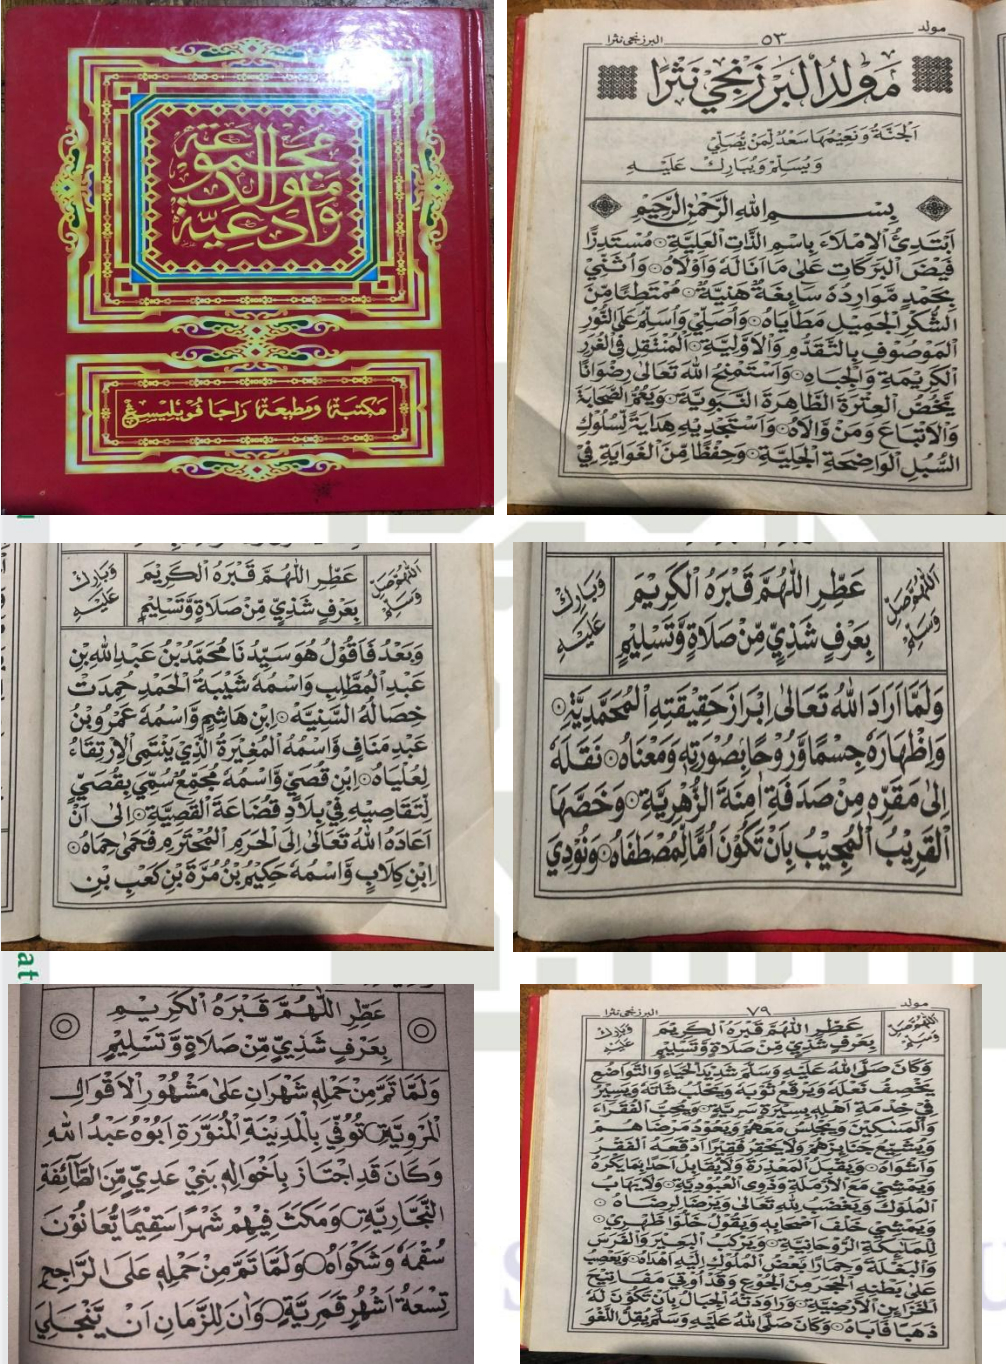 مجموعة
موالد
وادعية
مكتبة ومطبعة راجا فويليسيغ
مولد
٥٣
البرزنجي نثرا
مَوْلِدُ الْبَرْزَنْجِيْ نَثْرًا
اَلْجَنَّةُ وَنَعِيْمُهَا سَعْدٌ لِمَنْ يُصَلِّيْ
وَيُسَلِّمُ وَيُبَارِكُ عَلَيْهِ
بِسْمِ اللهِ الرَّحْمٰنِ الرَّحِيْمِ
اَبْتَدِئُ الْاِمْلَاءَ بِاسْمِ الذَّاتِ الْعَلِيَّةِ ۞ مُسْتَدِرًّا
فَيْضَ الْبَرَكَاتِ عَلٰى مَا اَنَالَهُ وَاَوْلَاهُ ۞ وَاُثَنِّيْ
بِحَمْدٍ مَّوَارِدُهُ سَائِغَةٌ هَنِيَّةٌ ۞ مُمْتَطِئًا مِنَ
الشُّكْرِ الْجَمِيْلِ مَطَايَاهُ ۞ وَاُصَلِّيْ وَاُسَلِّمُ عَلَى النُّوْرِ
الْمَوْصُوْفِ بِالتَّقَدُّمِ وَالْاَوَّلِيَّةِ ۞ الْمُنْتَقِلِ فِي الْغُرَرِ
الْكَرِيْمَةِ وَالْجِبَاهِ ۞ وَاَسْتَمْنِحُ اللهَ تَعَالٰى رِضْوَانًا
يَّخُصُّ الْعِتْرَةَ الطَّاهِرَةَ النَّبَوِيَّةَ ۞ وَيَعُمُّ الصَّحَابَةَ
وَالْاَتْبَاعَ وَمَنْ وَّالَاهُ ۞ وَاَسْتَجْدِيْهِ هِدَايَةً لِّسُلُوْكِ
السُّبُلِ الْوَاضِحَةِ الْجَلِيَّةِ ۞ وَحِفْظًا مِّنَ الْغَوَايَةِ فِيْ
اَللّٰهُمَّ صَلِّ وَسَلِّمْ
عَطِّرِ اللّٰهُمَّ قَبْرَهُ الْكَرِيْمَ
بِعَرْفٍ شَذِيٍّ مِّنْ صَلَاةٍ وَّتَسْلِيْمٍ
وَبَارِكْ عَلَيْهِ
وَبَعْدُ فَاَقُوْلُ هُوَ سَيِّدُنَا مُحَمَّدُ بْنُ عَبْدِ اللهِ بْنِ
عَبْدِ الْمُطَّلِبِ وَاسْمُهُ شَيْبَةُ الْحَمْدِ حُمِدَتْ
خِصَالُهُ السَّنِيَّةُ ۞ اِبْنِ هَاشِمٍ وَّاسْمُهُ عَمْرُو بْنُ
عَبْدِ مَنَافٍ وَّاسْمُهُ الْمُغِيْرَةُ الَّذِيْ يَنْتَمِى الْاِرْتِقَاءُ
لِعُلْيَاهُ ۞ اِبْنِ قُصَيٍّ وَّاسْمُهُ مُجَمِّعٌ سُمِّيَ بِقُصَيٍّ
لِتَقَاصِيْهِ فِيْ بِلَادِ قُضَاعَةَ الْقَصِيَّةِ ۞ اِلٰى اَنْ
اَعَادَهُ اللهُ تَعَالٰى اِلَى الْحَرَمِ الْمُحْتَرَمِ فَحَمٰى حِمَاهُ ۞
اِبْنِ كِلَابٍ وَّاسْمُهُ حَكِيْمُ بْنُ مُرَّةَ بْنِ كَعْبِ بْنِ
اَللّٰهُمَّ صَلِّ وَسَلِّمْ
عَطِّرِ اللّٰهُمَّ قَبْرَهُ الْكَرِيْمَ
بِعَرْفٍ شَذِيٍّ مِّنْ صَلَاةٍ وَّتَسْلِيْمٍ
وَبَارِكْ عَلَيْهِ
وَلَمَّا اَرَادَ اللهُ تَعَالٰى اِبْرَازَ حَقِيْقَتِهِ الْمُحَمَّدِيَّةِ ۞
وَاِظْهَارَهُ جِسْمًا وَّرُوْحًا بِصُوْرَتِهِ وَمَعْنَاهُ ۞ نَقَلَهُ
اِلٰى مَقَرِّهِ مِنْ صَدَفَةِ اٰمِنَةَ الزُّهْرِيَّةِ ۞ وَخَصَّهَا
الْقَرِيْبُ الْمُجِيْبُ بِاَنْ تَكُوْنَ اُمًّا لِّمُصْطَفَاهُ ۞ وَنُوْدِيَ
at
عَطِّرِ اللّٰهُمَّ قَبْرَهُ الْكَرِيْمَ
بِعَرْفٍ شَذِيٍّ مِّنْ صَلَاةٍ وَّتَسْلِيْمٍ
وَلَمَّا تَمَّ مِنْ حَمْلِهِ شَهْرَانِ عَلٰى مَشْهُوْرِ الْاَقْوَالِ
الْمَرْوِيَّةِ ۞ تُوُفِّيَ بِالْمَدِيْنَةِ الْمُنَوَّرَةِ اَبُوْهُ عَبْدُ اللهِ
وَكَانَ قَدِ اجْتَازَ بِاَخْوَالِهِ بَنِيْ عَدِيٍّ مِّنَ الطَّائِفَةِ
النَّجَّارِيَّةِ ۞ وَمَكَثَ فِيْهِمْ شَهْرًا سَقِيْمًا يُّعَانُوْنَ
سُقْمَهُ وَشَكْوَاهُ ۞ وَلَمَّا تَمَّ مِنْ حَمْلِهِ عَلَى الرَّاجِحِ
تِسْعَةُ اَشْهُرٍ قَمَرِيَّةٍ ۞ وَاٰنَ لِلزَّمَانِ اَنْ يَّنْجَلِيَ
مولد
٧٩
البرزنجي نثرا
اَللّٰهُمَّ صَلِّ وَسَلِّمْ
عَطِّرِ اللّٰهُمَّ قَبْرَهُ الْكَرِيْمَ
بِعَرْفٍ شَذِيٍّ مِّنْ صَلَاةٍ وَّتَسْلِيْمٍ
وَبَارِكْ عَلَيْهِ
وَكَانَ صَلَّى اللهُ عَلَيْهِ وَسَلَّمَ شَدِيْدَ الْحَيَاءِ وَالتَّوَاضُعِ
يَخْصِفُ نَعْلَهُ وَيَرْقَعُ ثَوْبَهُ وَيَحْلُبُ شَاتَهُ وَيَسِيْرُ
فِيْ خِدْمَةِ اَهْلِهِ بِسِيْرَةٍ سَرِيَّةٍ ۞ وَيُحِبُّ الْفُقَرَاءَ
وَالْمَسٰكِيْنَ وَيَجْلِسُ مَعَهُمْ وَيَعُوْدُ مَرْضَاهُمْ
وَيُشَيِّعُ جَنَائِزَهُمْ وَلَا يَحْقِرُ فَقِيْرًا اَدْقَعَهُ الْفَقْرُ
وَاَشْوَاهُ ۞ وَيَقْبَلُ الْمَعْذِرَةَ وَلَا يُقَابِلُ اَحَدًا بِمَا يَكْرَهُ
وَيَمْشِيْ مَعَ الْاَرْمَلَةِ وَذَوِى الْعُبُوْدِيَّةِ ۞ وَلَا يَهَابُ
الْمُلُوْكَ وَيَغْضَبُ لِلّٰهِ تَعَالٰى وَيَرْضٰى لِرِضَاهُ ۞
وَيَمْشِيْ خَلْفَ اَصْحَابِهِ وَيَقُوْلُ خَلُّوْا ظَهْرِيْ
لِلْمَلٰئِكَةِ الرُّوْحَانِيَّةِ ۞ وَيَرْكَبُ الْبَعِيْرَ وَالْفَرَسَ
وَالْبَغْلَةَ وَحِمَارًا بَعْضُ الْمُلُوْكِ اِلَيْهِ اَهْدَاهُ ۞ وَيَعْصِبُ
عَلٰى بَطْنِهِ الْحَجَرَ مِنَ الْجُوْعِ وَقَدْ اُوْتِيَ مَفَاتِيْحَ
الْخَزَائِنِ الْاَرْضِيَّةِ ۞ وَرَاوَدَتْهُ الْجِبَالُ بِاَنْ تَكُوْنَ لَهُ
ذَهَبًا فَاَبَاهُ ۞ وَكَانَ صَلَّى اللهُ عَلَيْهِ وَسَلَّمَ يُقِلُّ اللَّغْوَ